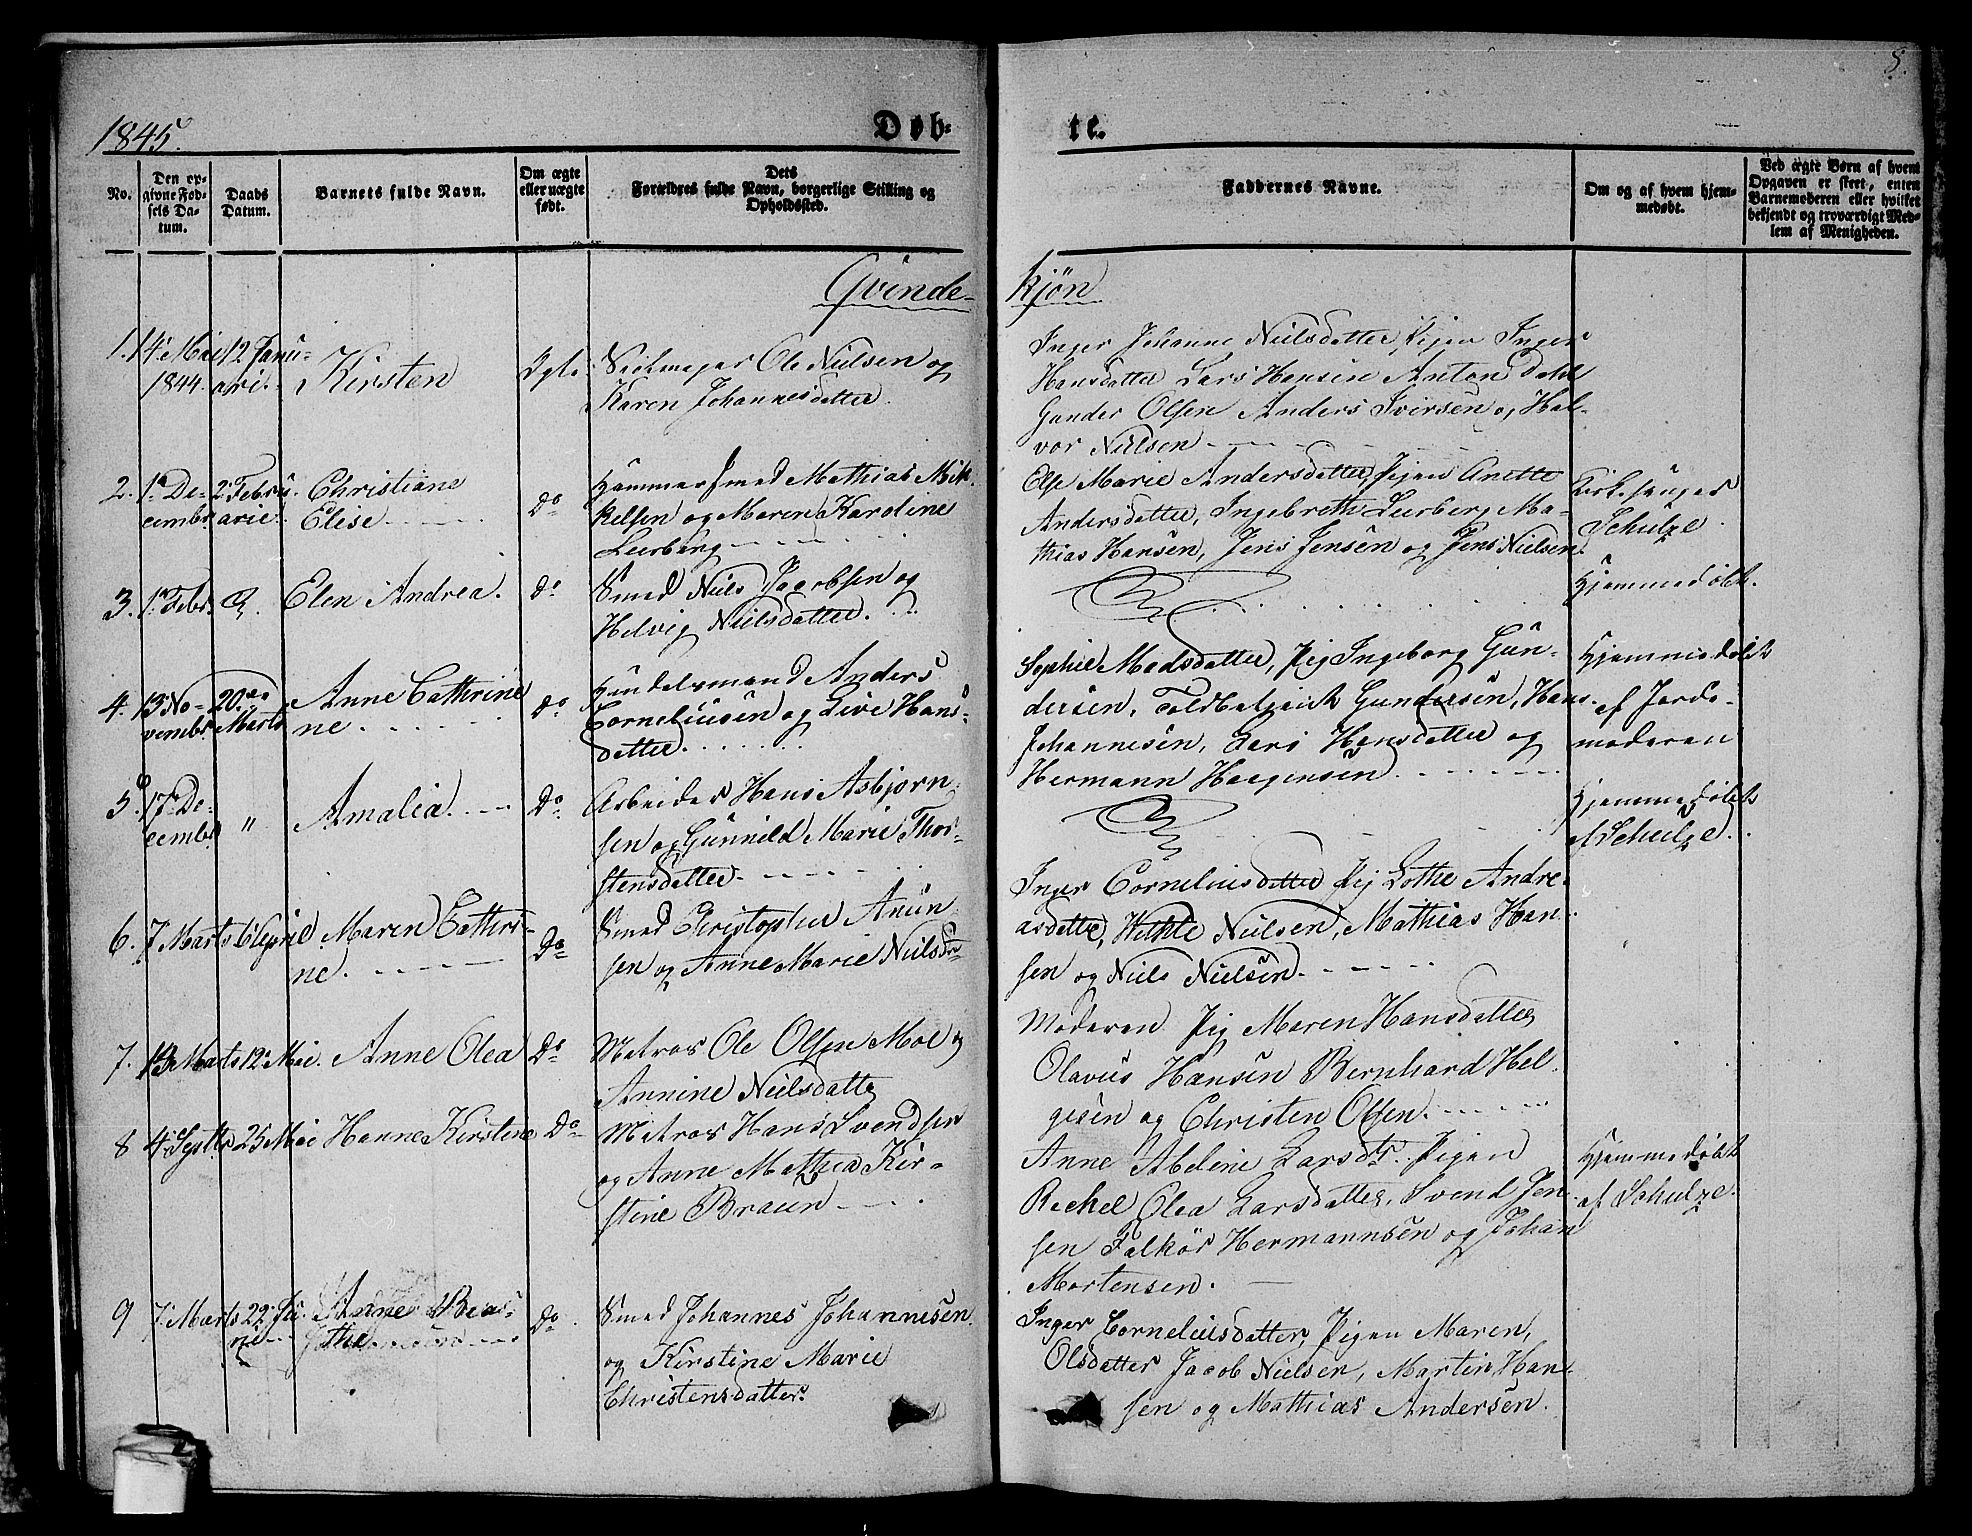 1845.
Døb-
te.
8.
No.
Den op-
givne Fød-
sels Da-
tum.
Daabs
Datum.
Barnets fulde Navn.
Om ægte
eller uægte
født.
Dets
Forældres fulde Navn, borgerlige Stilling og
Opholdssted.
Faddernes Navne.
Om og af hvem hjem-
medøbt.
Ved ægte Børn af hvem
Opgaven er skeet, enten
Barnemoderen eller hvilket
bekjendt og troværdigt Med-
lem af Menigheden.
Qvinde-
kjön
1. 14 Mai
1844.
12 Janu-
ari.
Kirsten
Ole Nielsen og
Karen Johannesdatter.
Inger Johanne Nielsdatter, Pigen Inger
Hansdatter Lars Hansen Anton Dahl
Gunder Olsen Anders Sivirsen og Hal-
vor Nielsen
2. 1 De-
cembr.
2 Febru-
arie.
Christiane
Elise
Do
Hammersmed Mathias Mik-
kelsen og Maren Karoline
Leerberg
Else Marie Andersdatter, Pigen Anette
Andersdatter, Ingebreth Leerberg Ma-
thias Hansen, Jens Jensen og Jens Nielsen.
Kirkesanger
Schulze.
3. 1 Febr.
2.
Elen Andrea.
Do
Smed Niels Jacobsen og
Helvig Nielsdatter.
Hjemmedöbt.
4. 13 No-
vembr.
20de
Marts
Anne Cathrine
ne.
Do
Handelsmand Anders
Corneliusen og Live Hans-
datter.
Sophie Madsdatter, Pig Ingeborg Gun-
dersen, Toldbetjent Gundersen, Hans
Johannesen, Lars Hansdatter og
Hermann Haagensen.
Hjemmedöbt
af Jorde-
moderen
5. 17 De-
cembr.
"
Amalia.
Do
Arbeider Hans Asbjørn-
sen og Gunnild Marie Thor-
stensdatter.
Hjemmedöbt
af Schulze.
6. 7 Marts
6 April
Maren Cathri-
ne.
Do
Smed Christopher Anun-
sen og Anne Marie Nielsdr
Inger Corneliusdatter Pig Lothe Andre-
asdatter, Nielsen, Mathias Han-
sen og Niels Nielsen.
7. 13 Marts
12 Mai.
Anne Olea
Do
Matros Ole Olsen Moe og
Annine Nielsdatter
Moderen Pig Maren Hansdatter
Olavus Hansen Bernhard Hel-
gesen og Christen Olsen.
8 4 Septbr
25 Mai
Hanne Kirstine
Do
Matros Hans Svendsen
og Anne Mathea Kir-
stine Braun
Anne Abeline Larsdtr. Pigen
Rachel Olea Larsdatter, Svend Jen-
sen Falkör Hermannsen og Johan
Mortensen.
Hjemmedöbt
af Schulze.
9 7 Marts
22 Ju-
ni
Anne
Do
Smed Johannes Johannesen
og Kirstine Marie
Christensdatter.
Inger Corneliusdatter, Pigen Maren,
Olsdatter Jacob Nielsen, Martin Han-
sen og Mathias Andersen.